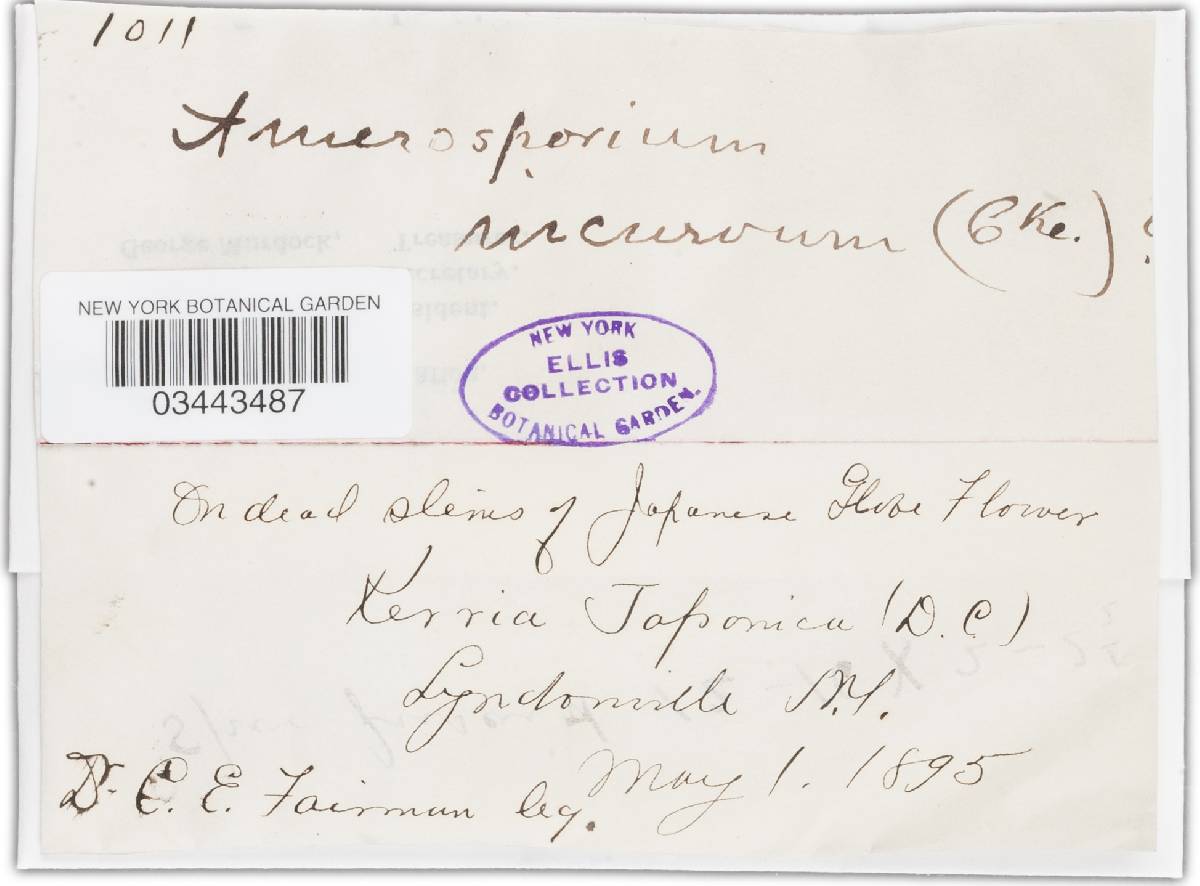 1011
Amerosporium
incurvum (Cke.) ?
NEW YORK BOTANICAL GARDEN
03443487
NEW YORK
ELLIS
COLLECTION
BOTANICAL GARDEN.
George Murdock, Treasurer.
On dead stems of Japanese Globe Flower
Kerria Japonica (D.C)
Lyndonville N.Y.
May 1. 1895
Dr. C. E. Fairman leg.